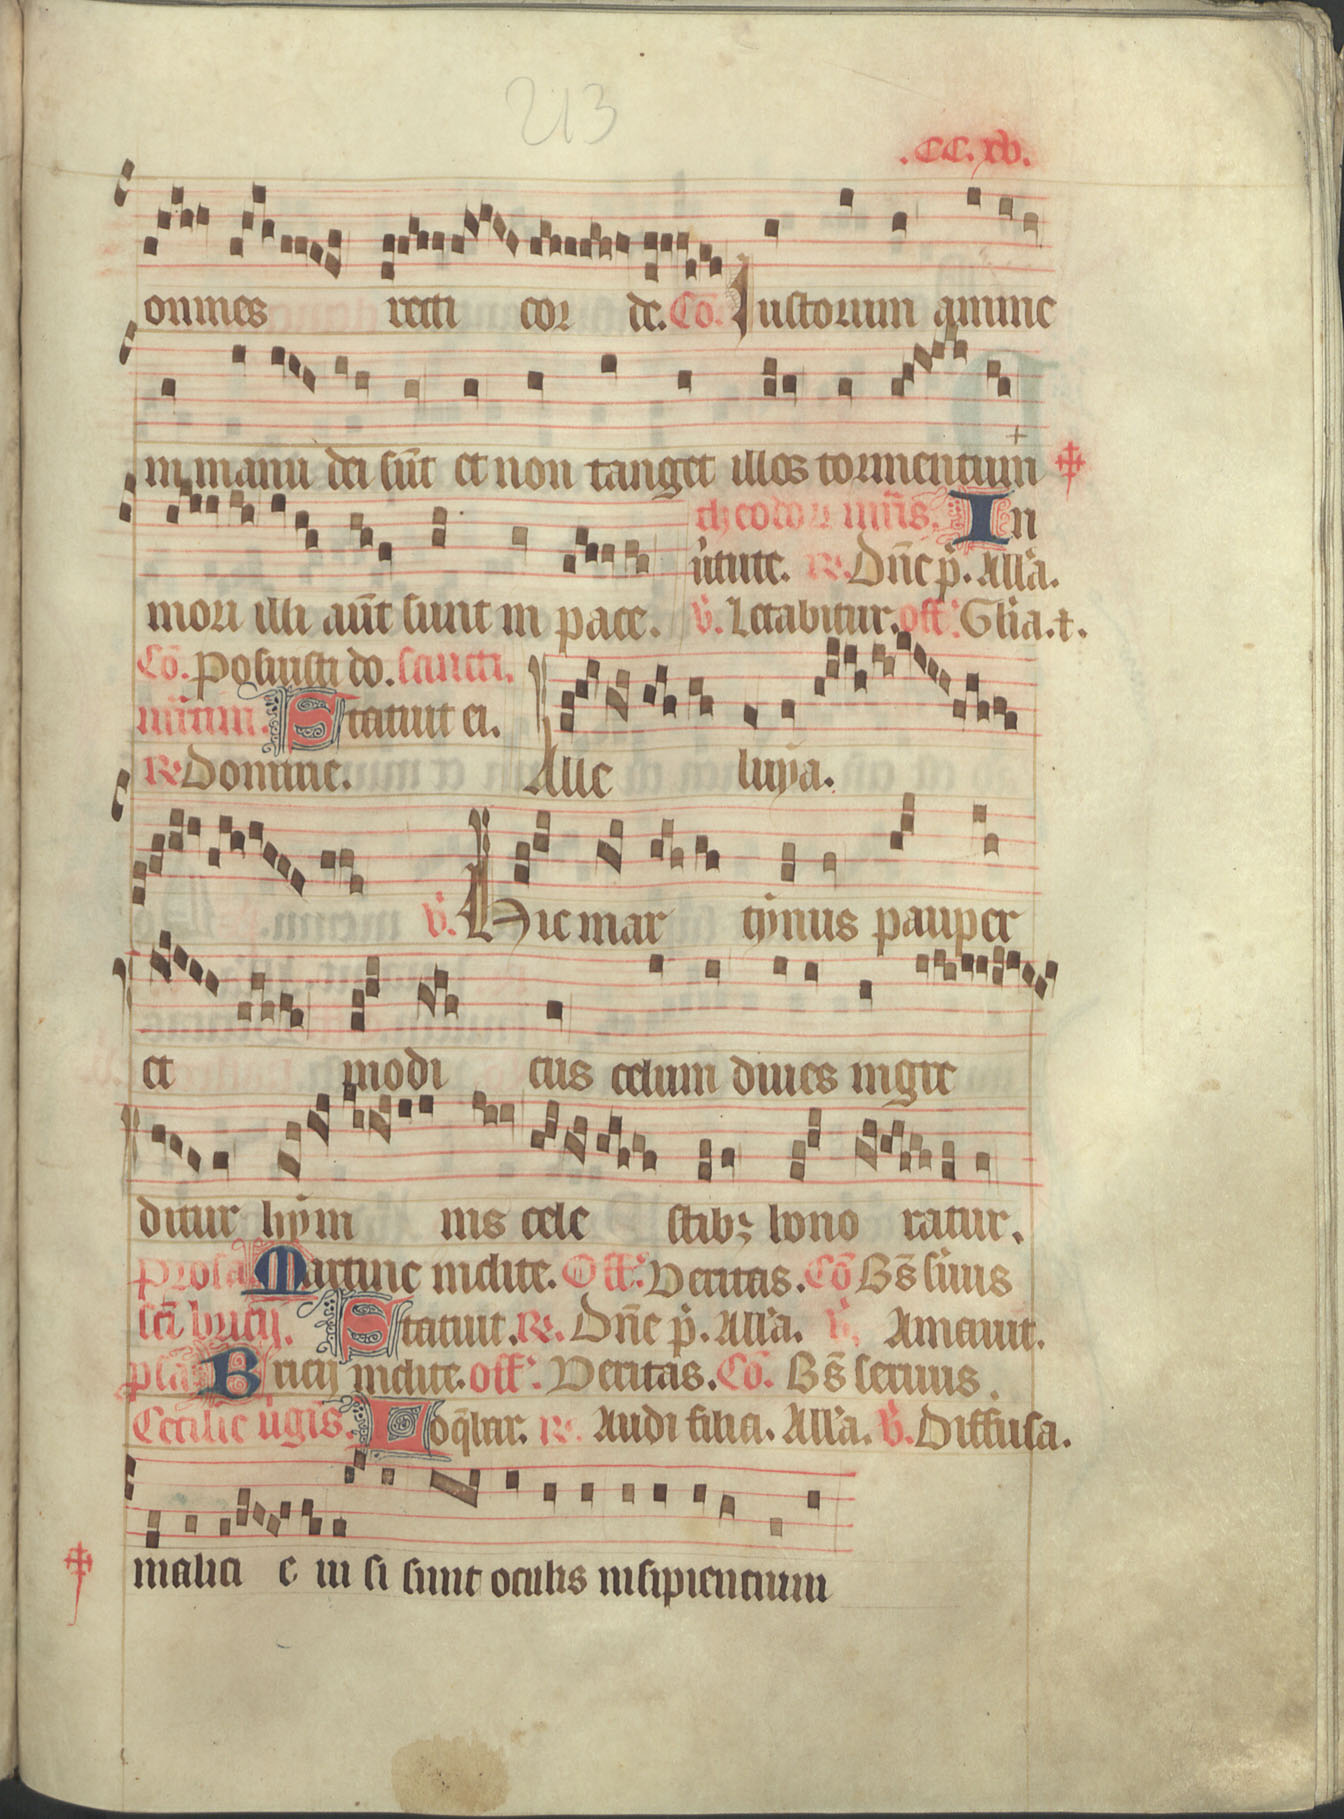 213
.CC.xv.
omnes recti cor de. Cō. Iustorum anime
in manu dei sūt et non tanget illos tormentum
theodori mr̄is. In
u̇tute. R. Dn̄e p̄. All'a.
mori illi aūt sunt in pace. v̄. Letabitur. off'. Gl'ia. t.
Cō. Posuisti do. sancti.
Statuit ei.
R. Domine. Alle luya.
v̄. Hic mar tynus pauper
et modi cus celum diues ingre
ditur hym nis cele stibꝫ hono ratur.
Prosa Martine inclite. Off'. Veritas. Cō Bs̄ s'uus
sc̄i bricij. Statuit. R. Dn̄e p̄. All'a. v̄. Amauit.
p̄sa Bricij inclite. off'. Veritas. Cō. Bs̄ seruus.
Cecilie u̇gis. Loq̄bar. R. Audi filia. All'a. v̄. Diffusa.
malici e ui si sunt oculis insipiencium